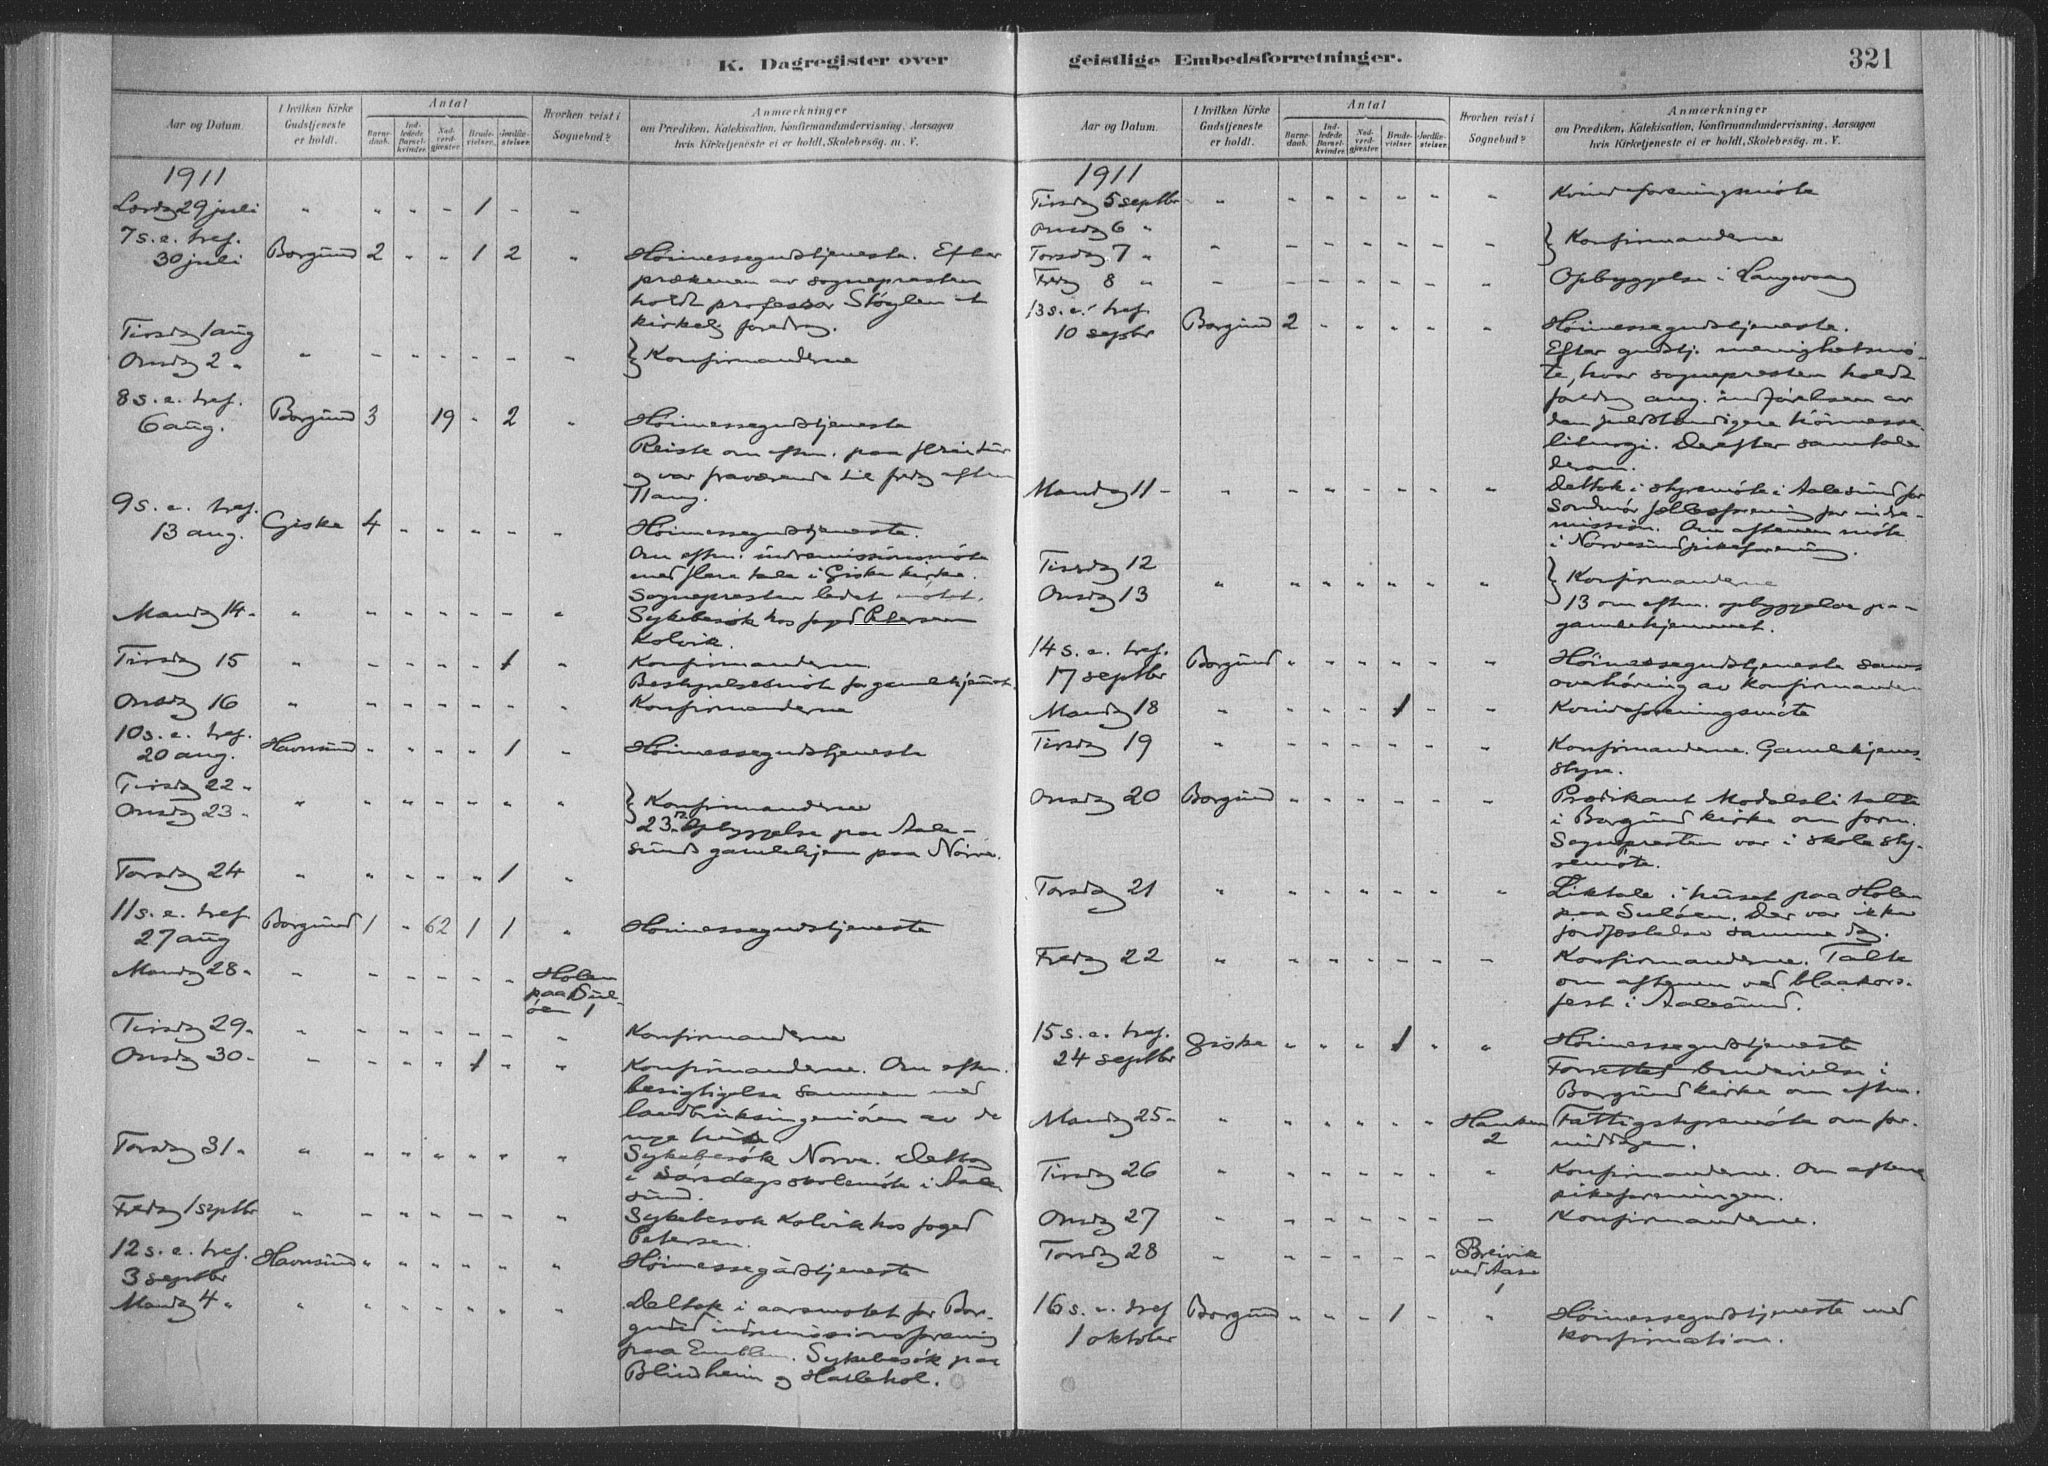 K. Dagregister over
Aar og Datum.
I hvilken Kirke Gudstjeneste er holdt.
Antal
Barnedaab.
Indledede Barselkvinder.
Nadverdgjester.
Brudevielser.
Jordfæstelser.
Hvorhen reist i Sognebud?
Anmærkninger
om Prædiken, Katekisation, Konfirmandundervisning, Aarsagen
hvis Kirketjeneste ei er holdt, Skolebesøg. m. V.
1911
Lørdag 29 juli " " - - - 1 - "
7 s. e. tref.
30 juli Borgund 2 " " 1 2 " Høimessegudstjeneste. Efter
prækenen av sognepresten
holdt professor Støylen et
kirkelig foredrag.
Tirsdag 1 aug
Onsdag 2 " " - - - - - " } Konfirmanderne
8 s. e. tref.
6 aug. Borgund 3 19 - 2 " Høimessegudstjeneste
Reiste om eftm. paa ferietur
og var fraværende til fredag eftm
11 aug.
9 s. e. tref.
13 aug. Giske 4 - - - - " Høimessegudstjeneste.
Om eftm. indremissionsmøte
med flere tale i Giske kirke.
Sognepresten ledet møtet.
Mandag 14 - " - - - - - " Sykebesøk hos foged Petersen
Kolvik.
Tirsdag 15 " - - - - 1 " Konfirmanderne.
Bestyrelsesmøte for gamlehjemmet.
Onsdag 16 " - - - - - " Konfirmanderne
10 s. e. tref.
20 aug. Havnsund " - - - 1 " Høimessegudstjeneste
Tirsdag 22 "
Onsdag 23 - " " - - - - " } Konfirmanderne
23. Opbyggelse paa Aale-
sunds gamlehjem paa Nørve.
Torsdag 24 " " - - - 1 "
11 s. e. tref.
27 aug Borgund 1 " 62 1 1 " Høimessegudstjeneste
Mandag 28 - " - - - - - Holen
paa Sul-
øen 1
Tirsdag 29 - " - - - - - " Konfirmanderne
Onsdag 30 - " - - - 1 - " Konfirmanderne. Om eftm.
besigtigelse sammen med
landbruksingeniøren av de
nye
Torsdag 31 " " " " " " " " Sykebesøk Nørve. Deltog
i søndagsskolemøte i Aale
sund.
Fredag 1 septbr " - - - - - " Sykebesøk Kolvik hos foged
Petersen.
12 s. e. tref.
3 septbr Havnsund " " " " " " Høimessegudstjeneste
Mandag 4 " " - - - - - " Deltok i aarsmøtet for Bor-
gund indremissionsforening
paa Emblem. Sykebesøk paa
Blindheim og Hatlehol.
geistlige Embedsforretninger.
321
Aar og Datum.
I hvilken Kirke Gudstjeneste er holdt.
Antal
Barnedaab.
Indledede Barselkvinder.
Nadverdgjester.
Brudevielser.
Jordfæstelser.
Hvorhen reist i Sognebud?
Anmærkninger
om Prædiken, Katekisation, Konfirmandundervisning, Aarsagen
hvis Kirketjeneste ei er holdt, Skolebesøg. m. V.
1911
Tirsdag 5 septbr " - - - - - " Kvindeforeningsmøte
Onsdag 6 "
Torsdag 7 " " - - - - - " } Konfirmanderne
Fredag 8 " - - - - - - " Opbyggelse i Langevaag
13 s. e. tref.
10 septbr Borgund 2 - - - - " Høimessegudstjeneste.
Efter gudstj. menighetsmø-
te, hvor sognepresten holdt
foredrag ang. indførelsen av
den fuldstændigere høimesse-
liturgi. Derefter samtale
derom.
Mandag 11 - " - - - - - " Deltok i styremøte i Aalesund for
Søndmør fellesforening for indre-
mission. Om aftenen møte
i Nørvesund pikeforening.
Tirsdag 12
Onsdag 13 " " " " " " " } Konfirmanderne
13 om eftm. opbyggelse paa
gamlehjemmet.
14 s. e. tref.
17 septbr Borgund " - - - - " Høimessegudstjeneste samt
overhøring av konfirmanderne
Mandag 18 " - - - 1 - " Kvindeforeningsmøte
Tirsdag 19 " - - - - - " Konfirmanderne. Gamlehjems-
styre.
Onsdag 20 Borgund - - - - - " Prædikant Modalsli talte
i Borgund kirke om form.
Sognepresten var i skolesty-
remøte.
Torsdag 21 " - - - - - " Liktale i huset paa Holen
paa Suløen. Der var ikke
jordfæstelse samme dag.
Fredag 22 " - - - - - - Konfirmanderne. Talte
om aftenen ved blaakors-
fest i Aalesund.
15 s. e. tref.
24 septbr Giske " " " 1 " " Høimessegudstjeneste
Forrettet brudevielse i
Borgund kirke om eftm.
Mandag 25 - " - - - - - 2 Fattigstyremøte om for-
middagen.
Tirsdag 26 " - - - - - " Konfirmanderne. Om aftenen
pikeforeningen.
Onsdag 27 " - - - - - - Konfirmanderne.
Torsdag 28 " - - - - - Breivik
ved Aase
1
16 s. e. tref
1 oktober Borgund " - - 1 - " Høimessegudstjeneste med
konfirmation.